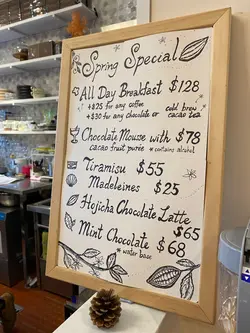 Spring Special
All Day Breakfast $128
+$25 for any coffee cold brew
+$30 for any chocolate or cacao tea
Chocolate Mousse with $78
cacao fruit purée *contains alcohol
Tiramisu $55
Madeleines $25
Hojicha Chocolate Latte
$65
Mint Chocolate $68
*water base